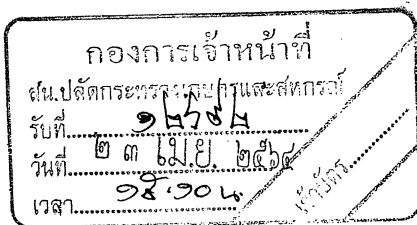 กองการเจ้าหน้าที่
สน.ปลัดกระทรวงเกษตรและสหกรณ์
รับที่
วันที่ ๒๓ เม.ย. ๒๕๖๔
เวลา ๑๕.๑๐ น.